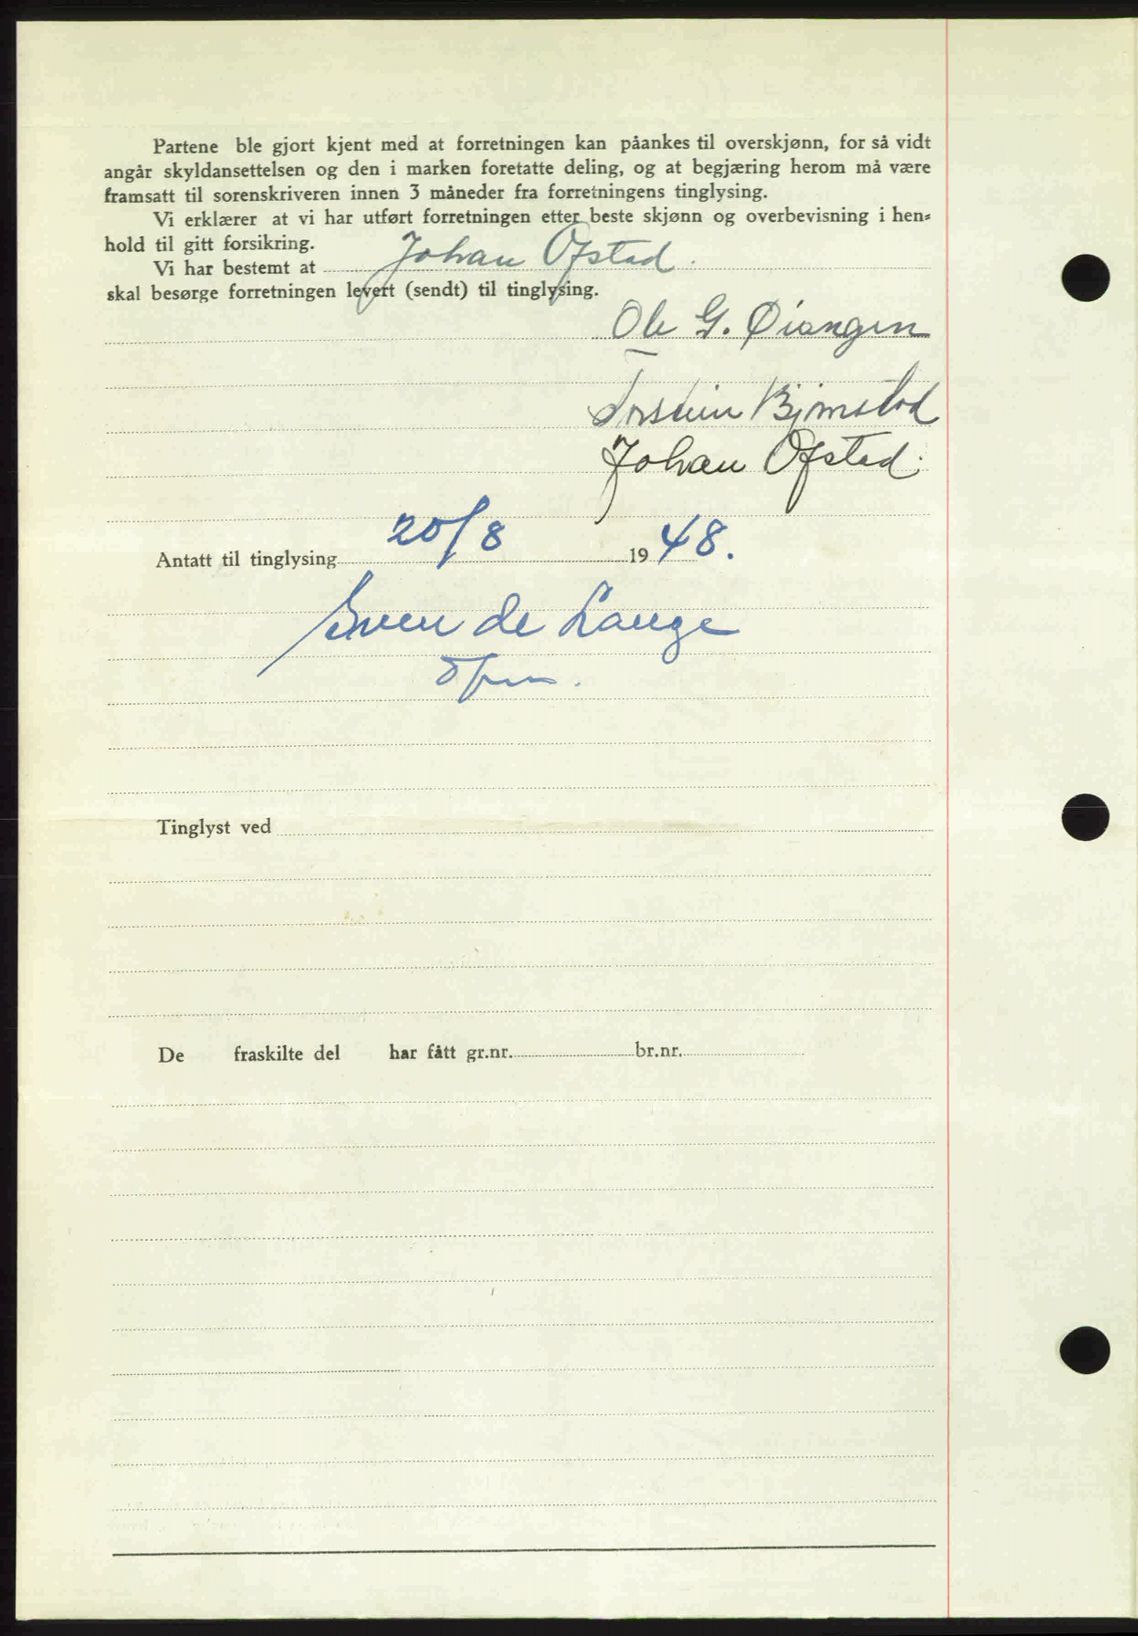 Partene ble gjort kjent med at forretningen kan påankes til overskjønn, for så vidt
angår skyldansettelsen og den i marken foretatte deling, og at begjæring herom må være
framsatt til sorenskriveren innen 3 måneder fra forretningens tinglysing.
Vi erklærer at vi har utført forretningen etter beste skjønn og overbevisning i hen=
hold til gitt forsikring.
Vi har bestemt at Johan Ofstad.
skal besørge forretningen levert (sendt) til tinglysing.
Ole G. Øiangen
Torstein Bjørnstad
Johan Ofstad.
Antatt til tinglysing 20/8 1948.
Sven de Lange
Tinglyst ved
De fraskilte del har fått gr.nr. br.nr.